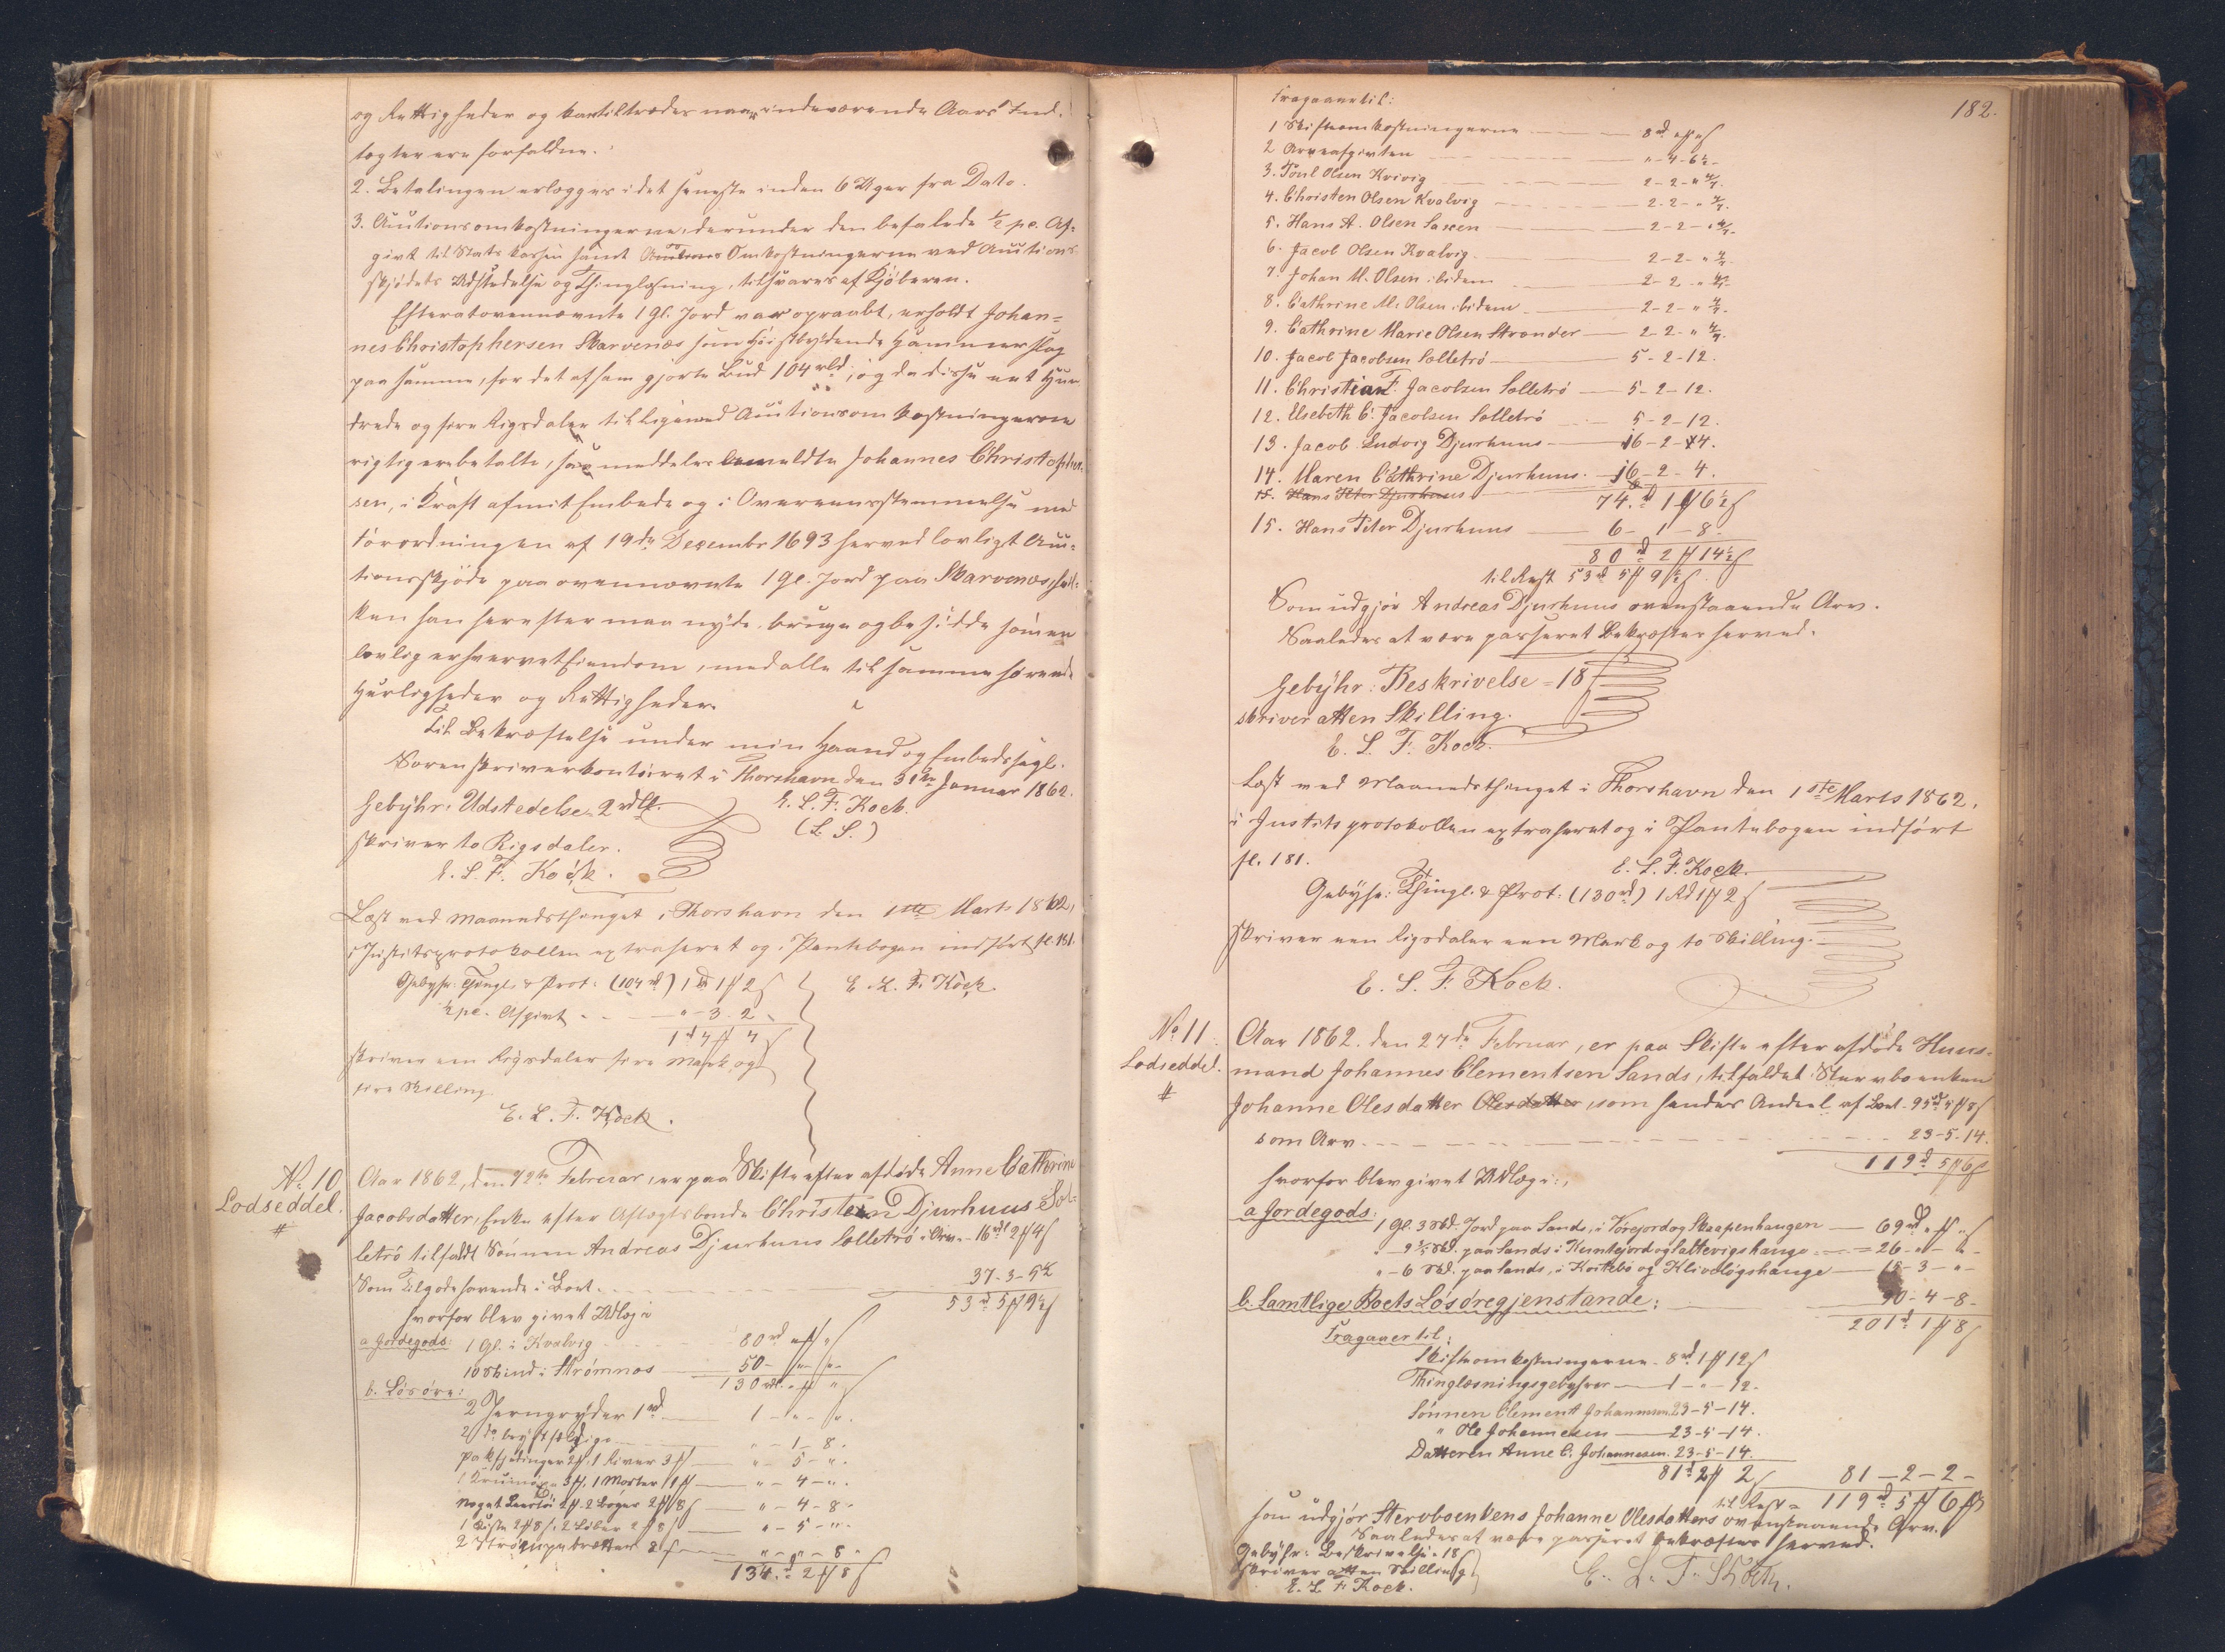 og Rettigheder og kan tiltrædes naar indeværende Aars Ind-
tægter ere forfaldne.
2. Betalingen erlægges i det seneste inden 6 Uger fra Dato.
3. Auctionsomkostningerne, derunder den befalede ½ pc. Af-
givt til Statskassen samt Omkostningerne ved Auctions-
skjödets Udstedelse og Thinglæsning, tilsvares af Kjöberen.
Efterat ovennævnte 1 Gl. Jord var opraabt, erholdt Johan-
nes Christophersen Skarvenæs som Höistbydende Hammerslag
paa samme, for det af ham gjorte Bud 104 rd; og da disse eet Hun-
drede og fire Rigsdaler tilligemed Auctionsomkostningerne
rigtig ere betalte, saa meddeles bemeldte Johannes Christopher-
sen, i Kraft af mit Embede og i Overeensstemmelse med
Forordningen af 19de Decembr 1693 herved lovligt Auc-
tionsskjöde paa ovennævnte 1 Gl. Jord paa Skarvenæs, hvil-
ken han herefter maa nyde, bruge og besidde som en
lovlig erhvervet Eiendom, med alle til samme hörende
Herligheder og Rettigheder.
Til Bekræftelse under min Haand og Embedssegl.
Sorenskriverkontoiret i Thorshavn den 31te Januar 1862.
Gebyhr: Udstedelse 2 rd E. L. F. Kock.
skriver to Rigsdaler. (L. S.)
E. L. F. Kock.
Læst ved Maanedsthinget i Thorshavn den 1ste Marts 1862,
i Justitsprotokollen extraheret og i Pantebogen indfört fl. 181.
Gebyhr: Thingl. & Prot: (104 rd) 1 rd 1 ß 2 E. L. F. Kock
½ pc. Afgivt " - 3. 2
1 rd 4 4
skriver een Rigsdaler fire Mark og
fire Skilling
E. L. F. Kock.
No. 10
Lodseddel.
#
Aar 1862, den 12te Februar, er paa Skifte efter afdöde Anne Cathrine
Jacobsdatter, Enke efter Aftægtsbonde Christen Djurhuus Sel-
letrö tilfaldt Sönnen Andreas Djurhuus Selletrö i Arv - 16 rd 2 4
Som Tilgodehavende i Boet 37-3-5½
53 rd 5 9½
hvorfor blev givet Udlæg i
a Jordegods: 1 Gl. i Kvalvig 80 rd " "
10 Skind i Strömnæs 50 - " - "
130 rd " "
b. Lösöre:
2 Jerngryder 1 rd 1 - " - "
2 do " - 1 - 8.
1 River 3 " - 5 - ".
1 Morter " - 4 - ".
Noget 2 Boger 2 8 " - 4 - 8.
1 Kiste 2 8 " - 5 - ".
2 8 " - " - 8 "
134. rd 2 8
182.
Fragaaer til:
1 Skifteomkostningerne 8 rd " "
2 Arveafgivten " - 4 - 6½ -
3. Poul Olsen Kvivig 2 - 2 - " 4/7.
4. Christen Olsen Kvalvig 2 - 2 - " 4/7.
5. Hans A. Olsen Saxen 2 - 2 - " 4/7.
6. Jacob Olsen Kvalvig 2 - 2 - " 4/7.
7. Johan M. Olsen ibidem 2 - 2 - " 4/7.
8. Cathrine M. Olsen ibidem 2 - 2 - " 4/7.
9. Cathrine Marie Olsen Strænder 2 - 2 - " 4/7.
10. Jacob Jacobsen Selletrö 5 - 2 - 12.
11. Christian F. Jacobsen Selletrö 5 - 2 - 12.
12. Elsebeth C. Jacobsen Selletrö 5 - 2 - 12.
13. Jacob Ludvig Djurhuus 16 - 2 - 4.
14. Maren Cathrine Djurhuus 16 - 2 - 4.
15. Hans Peter Djurhuus 74. rd 1 6½
15. Hans Peter Djurhuus 6 - 1 - 8
80 rd 2 14½
til Rest 53 rd 5 9½
Som udgjör Andreas Djurhuus ovenstaaende Arv.
Saaledes at være passeret bekræftes herved.
Gebyhr: Beskrivelse = 18
skriver atten Skilling.
E. L. F. Kock.
Læst ved Maanedsthinget i Thorshavn den 1ste Marts 1862,
i Justitsprotokollen extraheret og i Pantebogen indfört
fl. 181.
E. L. F. Kock.
Gebyhr: Thingl. & Prot: (130 rd) 1 Rd 1 2
skriver een Rigsdaler een Mark og to Skilling.
E. L. F. Kock.
No. 11
Lodseddel.
#
Aar 1862. den 27de Februar, er paa Skifte efter afdöde Huus-
mand Johannes Clementsen Sands, tilfaldet Stervboenken
Johanne Olesdatter Olesdatter, som hendes Andeel af Boet - 95 rd 5 8
som Arv 23-5-14.
119 rd 5 6
hvorfor blev givet Udlæg i:,
a Jordegods: 1 Gl. 3 Skd. Jord paa Sande, i Törejord og Skaapenhaugen 69 rd " "
" - 9⅗ Skd. paa Sands i Kuntejord og Sattevigshauge 26 - " - " -
" - 6 Skd. paa Sands, i Kortebö og Klivelögshauge 15 - 3 - " -
b. Samtlige Boets Lösöregjenstande: 90 - 4 - 8 -
201 rd 1 8
Fragaaer til:
Skifteomkostningerne - 8 rd 1 12
Thinglæsningsgebyhrer 1 - " - 12.
Sönnen Clement Johannesen 23 - 5 - 14.
" Ole Johannesen 23 - 5 - 14.
Datteren Anne C. Johannesen. 23 - 5 - 14.
81 rd 2 2 81 - 2 - 2 -
til Rest = 119 rd 5 6
som udgjör Stervboenkens Johanne Olesdatters ovenstaaende Arv.
Saaledes at være passeret bekræftes herved.
Gebyhr: Beskrivelse = 18
skriver atten Skilling
E. L. F. Kock. E. L. F. Kock.